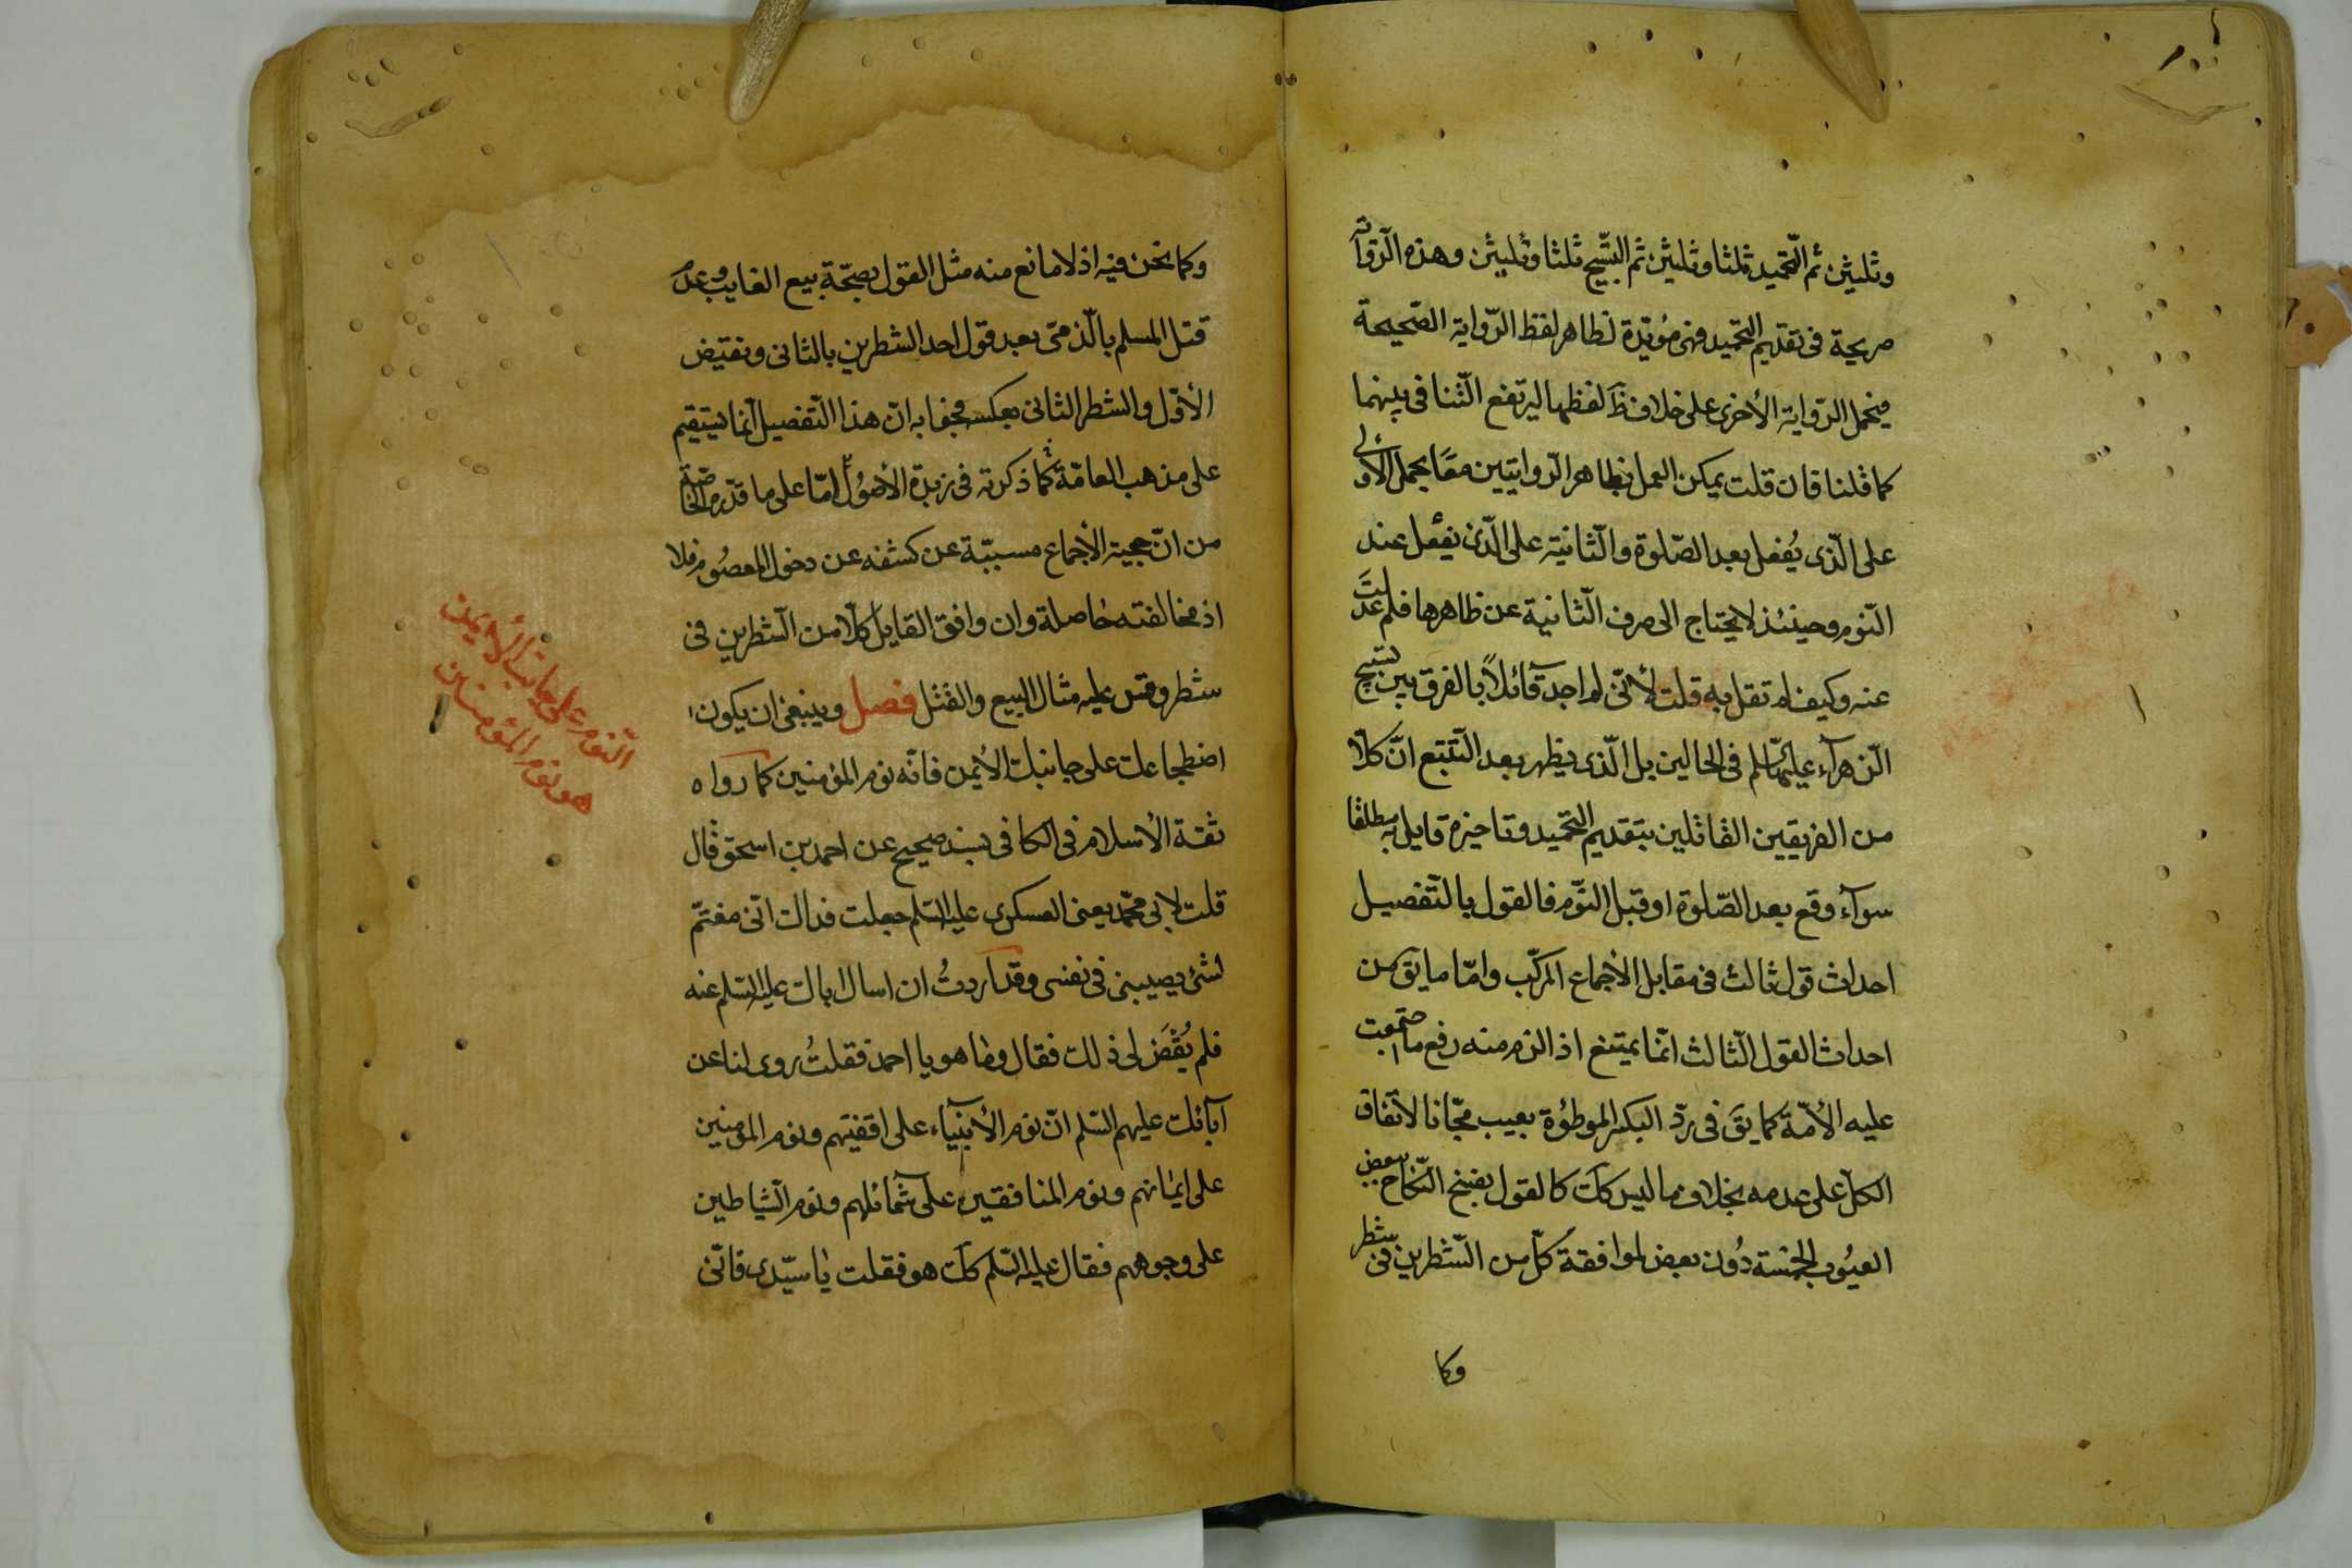 وثلثين ثم التحميد ثلثا وثلثين ثم التسبيح ثلثا وثلثين وهذه الرواية
صريحة فى تقديم التحميد فهى مؤيدة لظاهر لفظ الرواية الصحيحة
فيحمل الرواية الأخرى على خلاف ظ لفظها ليرتفع التنافى بينهما
كما قلنا فان قلت يمكن العمل بظاهر الروايتين معًا بحمل الأولى
على الّذى يُفعل بعد الصّلوة والثّانية على الّذى يفعل عند
النّوم وحينئذ لا يحتاج الى صرف الثّانية عن ظاهرها فلم عدلت
عنه وكيف لم تقل به قلت لأنّى لم اجد قائلاً بالفرق بين تسبيح
الزهرآء عليها السلم فى الحالين بل الّذى يظهر بعد التّتبع انّ كلّا
من الفريقين القائلين بتقديم التحميد وتاخيره قايل به مطلقا
سوآء وقع بعد الصّلوة او قبل النّوم فالقول بالتّفصيل
احداث قول ثالث فى مقابل الأجماع المركّب وامّا ما يق من
احداث القول الثّالث انّما يمتنع اذا لزم منه رفع ما اجتمعت
عليه الأمّة كما يقَ فى ردّ البكر الموطؤة بعيب مجّانا لاتّفاق
الكلّ على عدمه بخلاف ما ليس كك كالقول بفسخ النّكاح ببعض
العيُوب الخمسة دُون بعض لموافقة كلّ من الشّطرين فى شطر
وكا
وكما نحن فيه اذ لا مانع منه مثل القول بصحّة بيع الغايب وعدم
قتل المسلم بالّذمى بعد قول احد الشطرين بالثانى ونقيض
الأوّل والشطر الثانى بعكسه فجوابه انّ هذا التّفصيل انّما يستقيم
على مذهب العامّة كما ذكرته فى زبدة الأصُول امّا على ما قرّره الخاصّة
من انّ حجية الأجماع مسببّة عن كشفه عن دخول المعصُوم فلا
اذ مخالفته حاصلة وان وافق القايل كلّا من الشّطرين فى
شطر وقس عليه مثال البيع والقتل فصل وينبغى ان يكون
اضطجاعك على جانبك الأيمن فانّه نوم المؤمنين كما رواه
ثقة الأسلام فى الكافى بسند صحيح عن احمد بن اسحق قال
قلت لابى محمّد يعنى العسكرى عليه السّلم جعلت فداك انّى مغتمّ
لشئ يصيبنى فى نفسى وقد اردتُ ان اسال اباك عليه السّلم عنه
فلم يُقْضَ لى ذلك فقال وما هو يا احمد فقلتُ روى لنا عن
آبائك عليهم السّلم انّ نوم الأنبيآء على اقفيتهم ونوم المؤمنين
على ايمانهم ونوم المنافقين على شمآئلهم ونوم الشّياطين
على وجوههم فقال عليه السّلم كك هو فقلت يا سيّدى فانّى
النّوم على جانب الأيمن
هو نوم المؤمنين